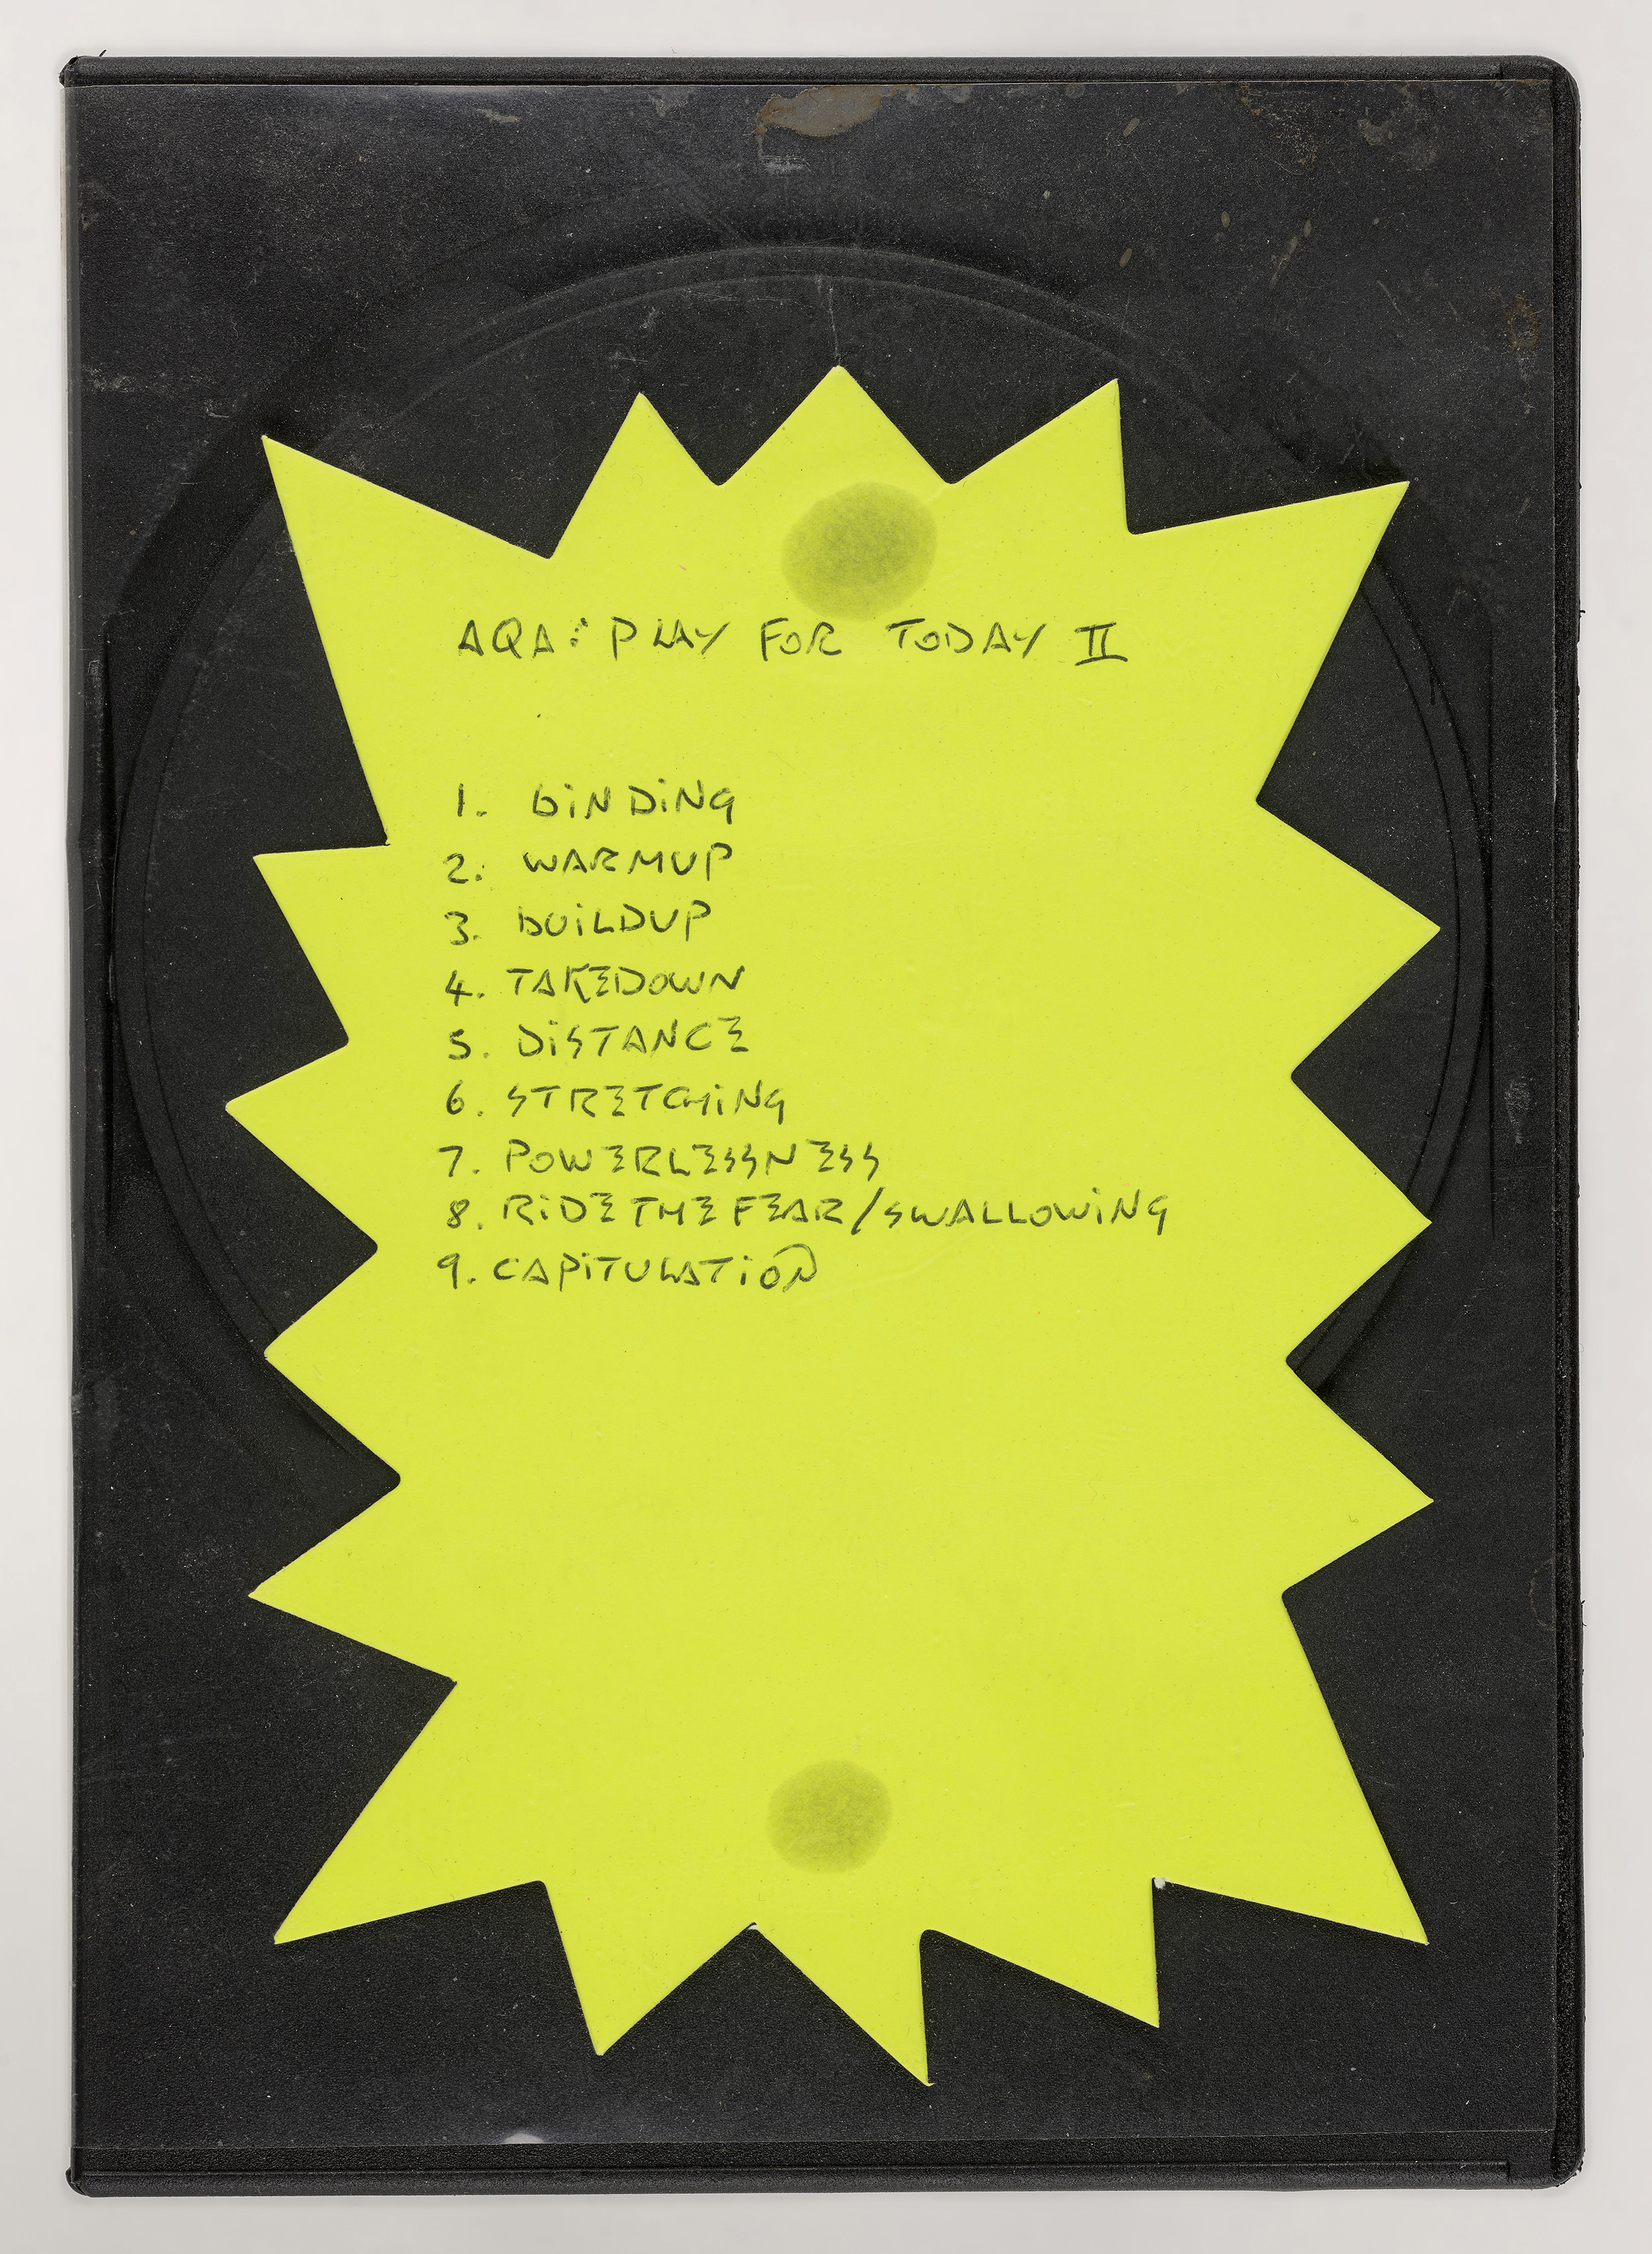 AQA: PLAY FOR TODAY II
1. BiNDiNG
2. WARMUP
3. BUiLDUP
4. TAKEDOWN
5. DiSTANCE
6. STRETCHiNG
7. POWERLESSNESS
8. RiDE THE FEAR/SWALLOWiNG
9. CAPiTULATiON